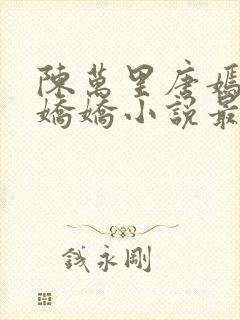 陳萬里唐嫣
嬌嬌小說最
钱永剛